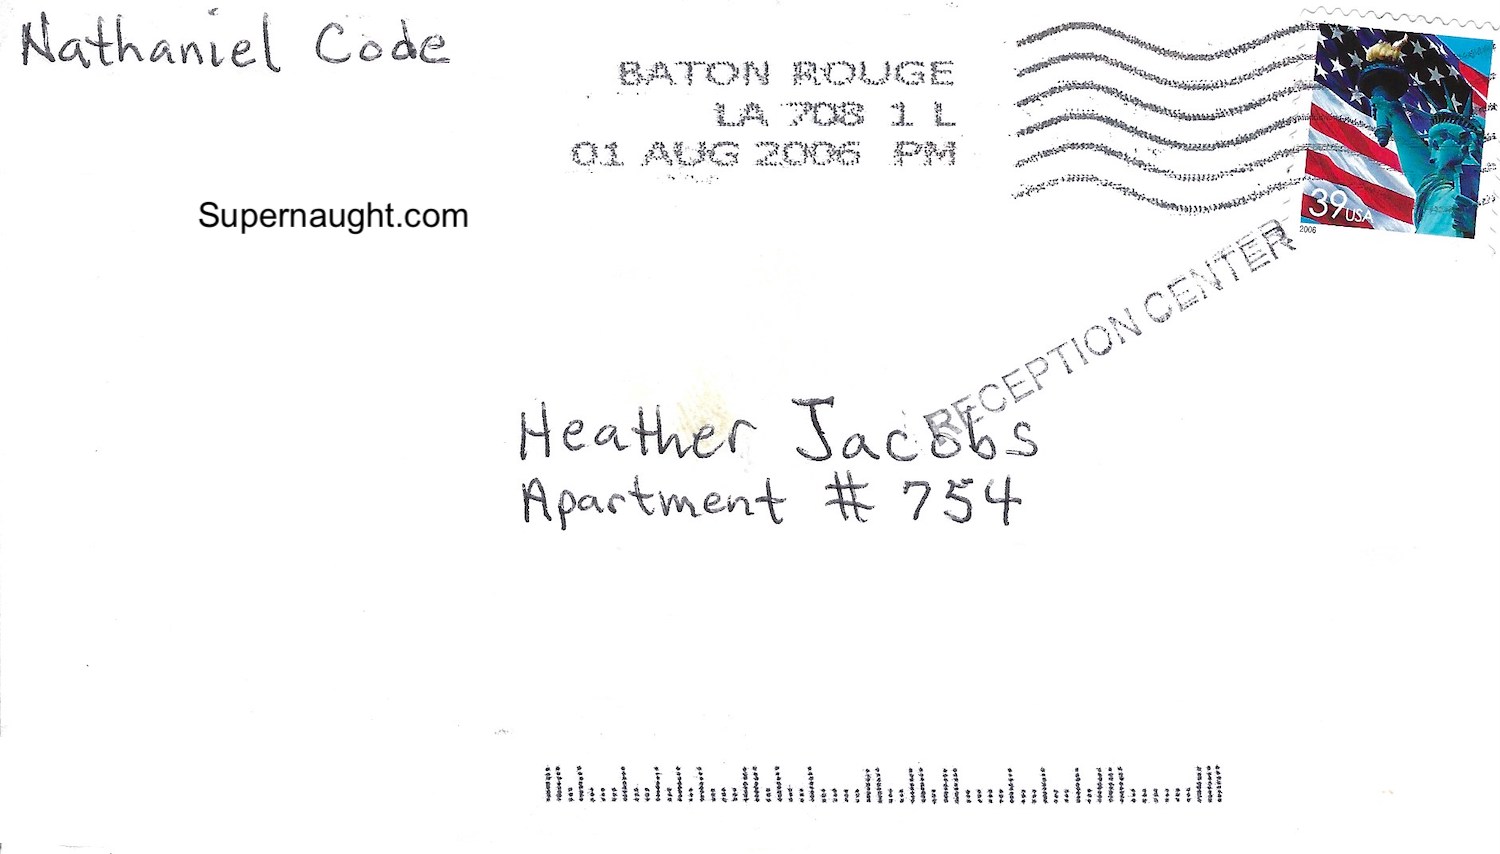 Nathaniel Code
BATON ROUGE
LA 708 1 L
01 AUG 2006 PM
39 USA
2006
Supernaught.com
RECEPTION CENTER
Heather Jacobs
Apartment # 754